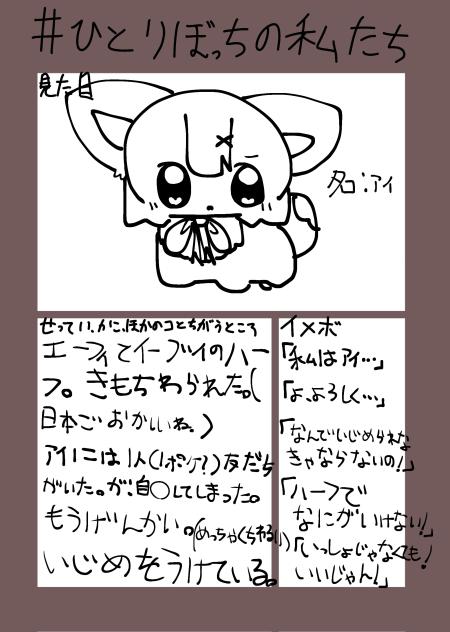 #ひとりぼっちの私たち
見た目
名:アイ
せってい、かこ、ほかのコとちがうところ
エーフィとイーブイのハー
フ。きもちわられた。(
日本ごおかしいね。)
アイには1人(1ポケ?)友だち
がいた。が、自〇してしまった。
もうげんかい。(めっちゃくちゃわるい)
いじめをうけている。
イメボ
「私はアイ…」
「よ、よろしく…」
「なんでいじめられな
きゃならないの!」
「ハーフで
なにがいけない!」
「いっしょじゃなくても!
いいじゃん!」